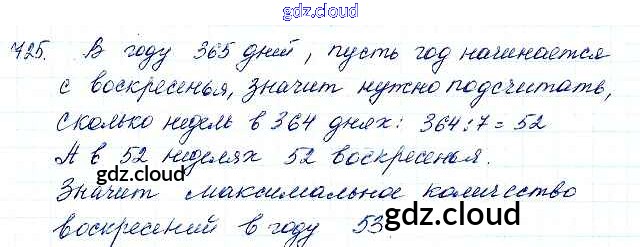 gdz.cloud
725. В году 365 дней, пусть год начинается
с воскресенья, значит нужно подсчитать,
сколько недель в 364 днях: 364:7=52
А в 52 неделях 52 воскресенья.
gdz.cloud gdz.cloud
Значит максимальное количество
воскресений в году 53
gdz.cloud gdz.cloud